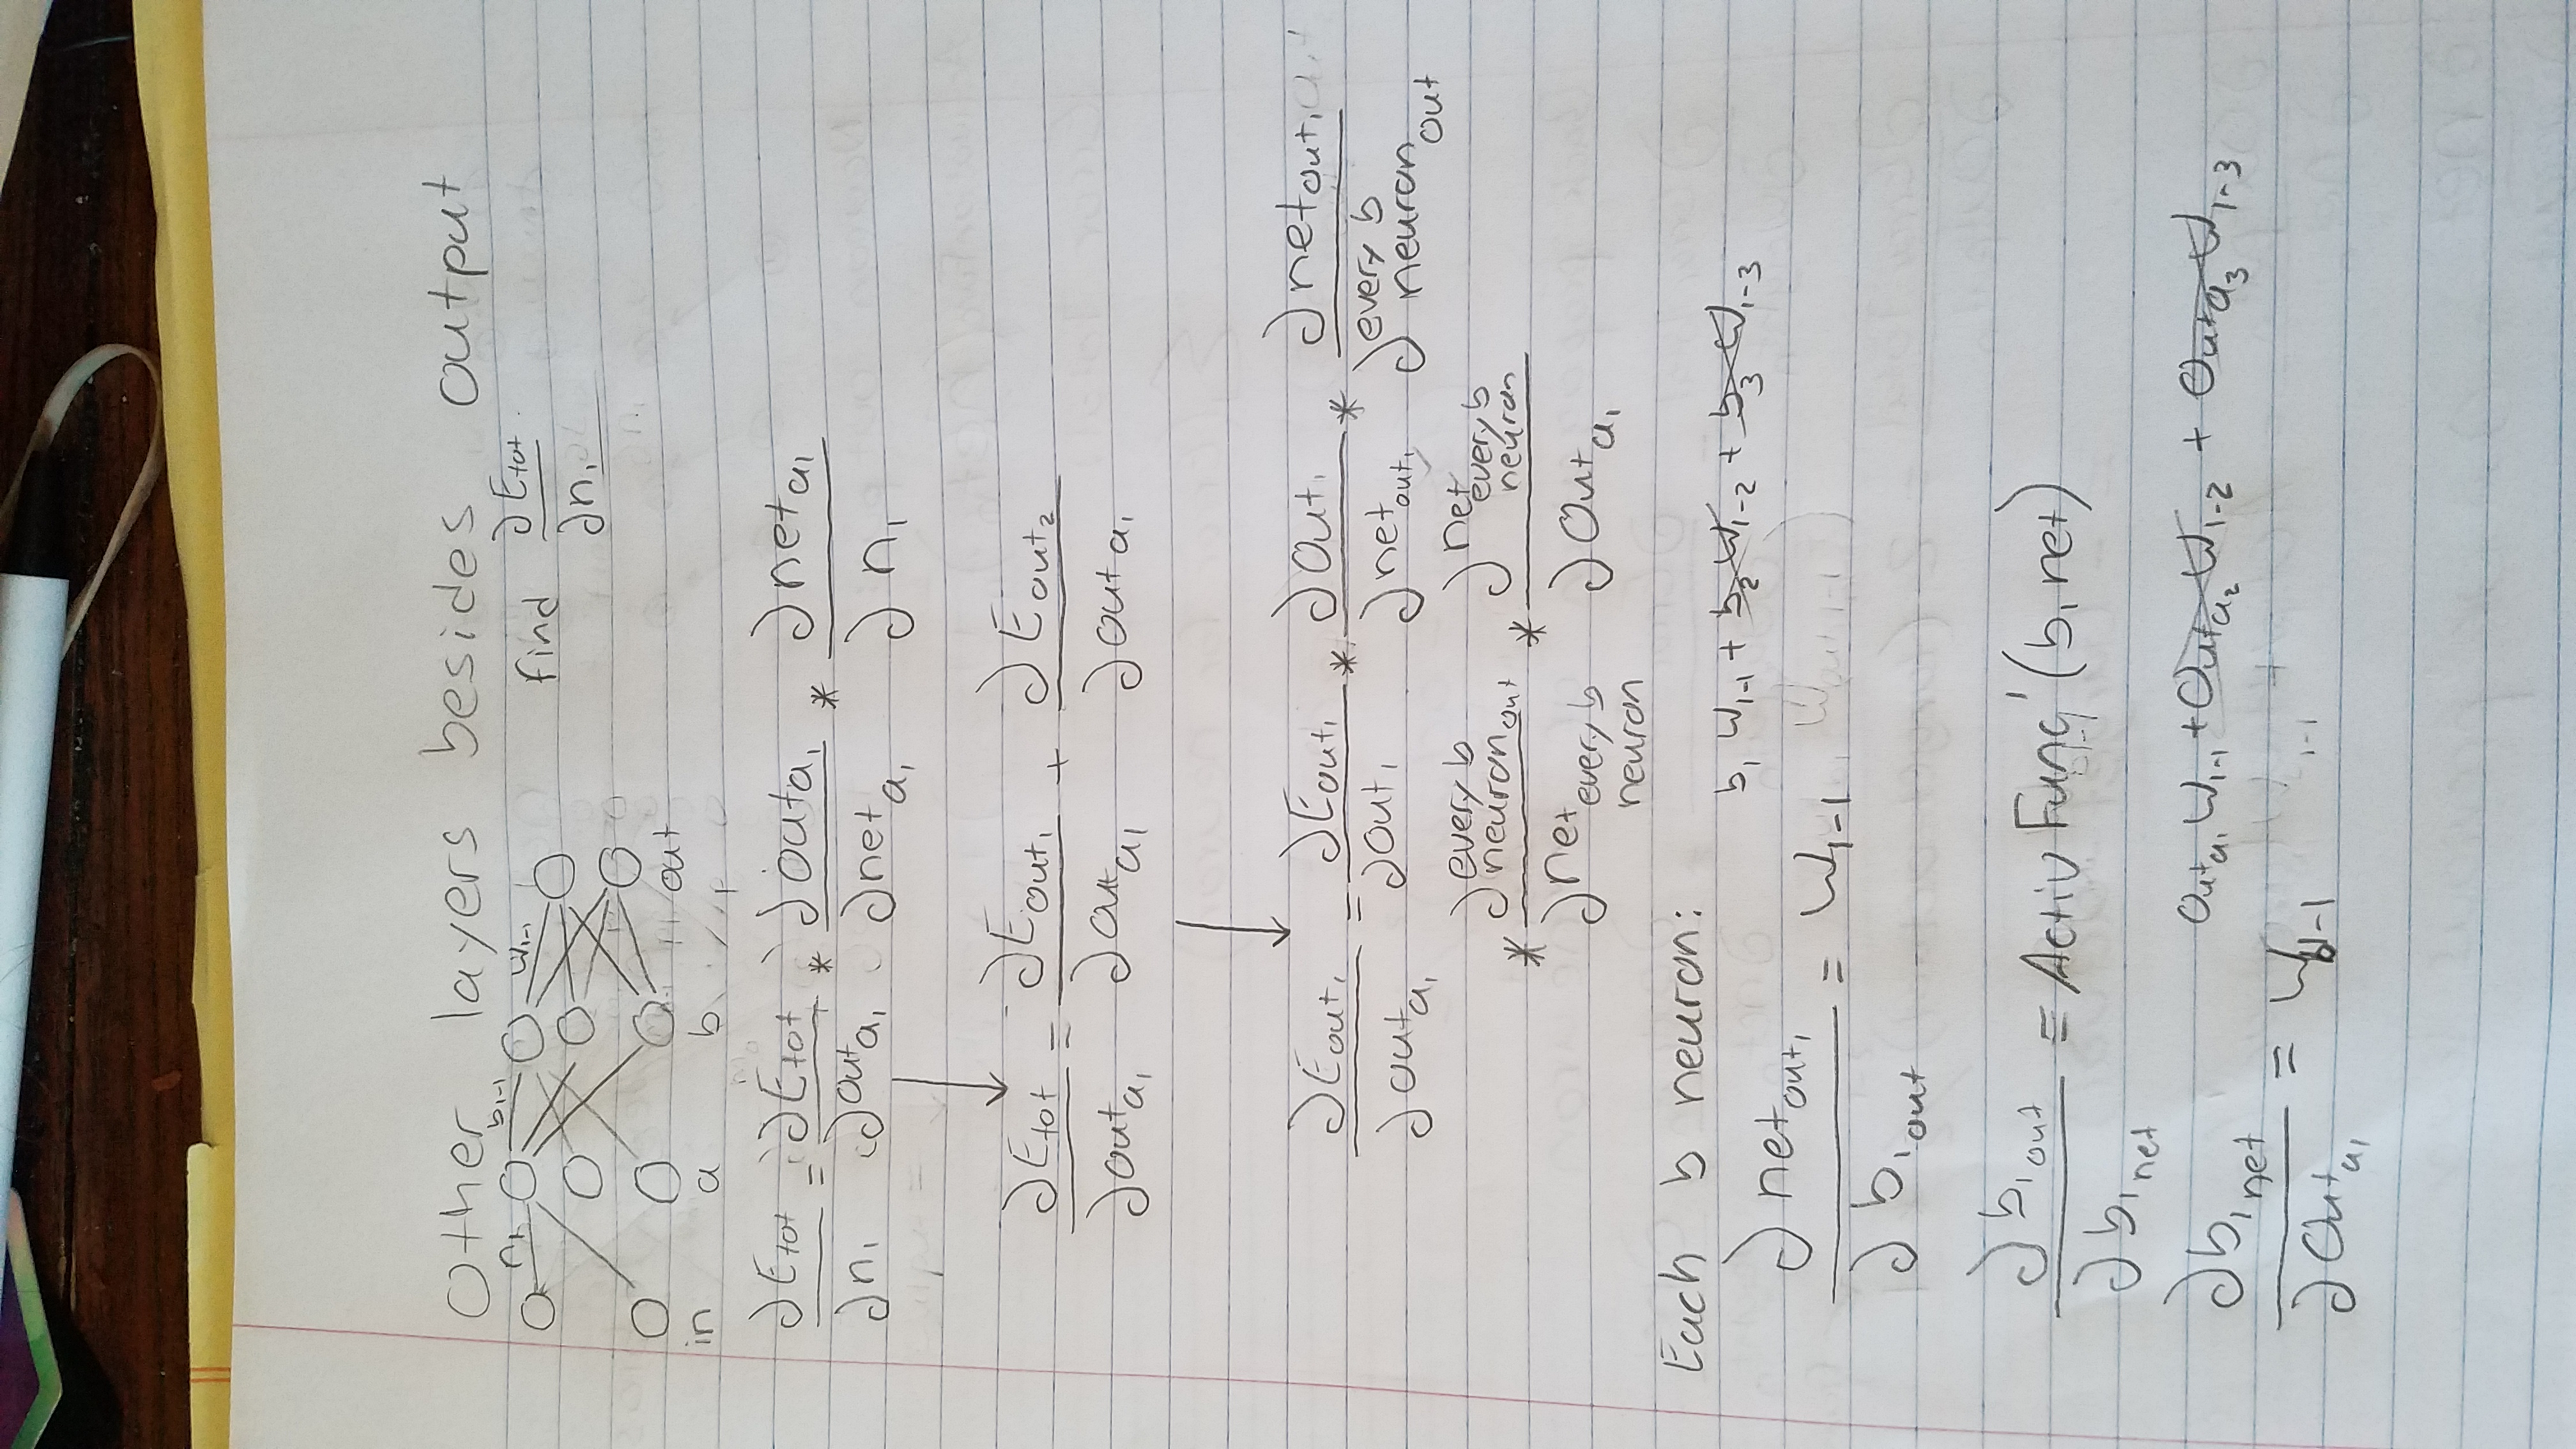 Other layers besides output
n₁ b₁₋₁ w₁₋₁
find ∂E_tot / ∂n₁
out
in a b
∂E_tot / ∂n₁ = ∂E_tot / ∂out_a₁ * ∂out_a₁ / ∂net_a₁ * ∂net_a₁ / ∂n₁
∂E_tot / ∂out_a₁ = ∂E_out₁ / ∂out_a₁ + ∂E_out₂ / ∂out_a₁
∂E_out₁ / ∂out_a₁ = ∂E_out₁ / ∂out₁ * ∂out₁ / ∂net_out₁ * ∂net_out₁ / ∂every b neuron_out
* ∂every b neuron_out / ∂net_every b neuron * ∂net_every b neuron / ∂out_a₁
Each b neuron:
b₁ w₁₋₁ + b₂ w₁₋₂ + b₃ w₁₋₃
∂net_out₁ / ∂b₁_out = w₁₋₁
∂b₁_out / ∂b₁_net = Activ Func'(b₁net)
out_a₁ w₁₋₁ + out_a₂ w₁₋₂ + out_a₃ w₁₋₃
∂b₁_net / ∂out_a₁ = w_b1-1